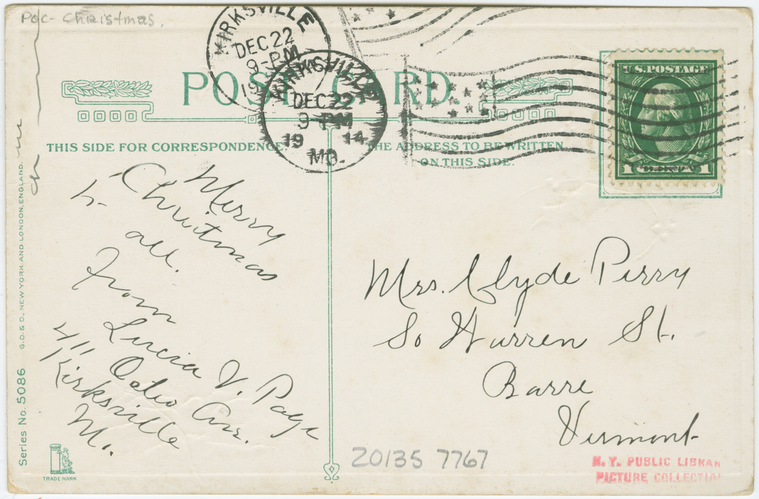 Poc- Christmas.
KIRKSVILLE
DEC 22
9-PM
19
KIRKSVILLE
DEC 22
9-PM
19 14
MO.
POST CARD
U.S.POSTAGE
1 CENT 1
THIS SIDE FOR CORRESPONDENCE
THE ADDRESS TO BE WRITTEN
ON THIS SIDE.
Merry
Christmas
to all.
from
Lucia V. Page
411 Ave.
Kirksville
Mo.
Mrs. Clyde Perry
So Warren St.
Barre
Vermont
Series No. 5086 G.O.& C., NEW YORK, AND LONDON, ENGLAND.
TRADE MARK
20135 7767
N. Y. PUBLIC LIBRAR
PICTURE COLLECTION